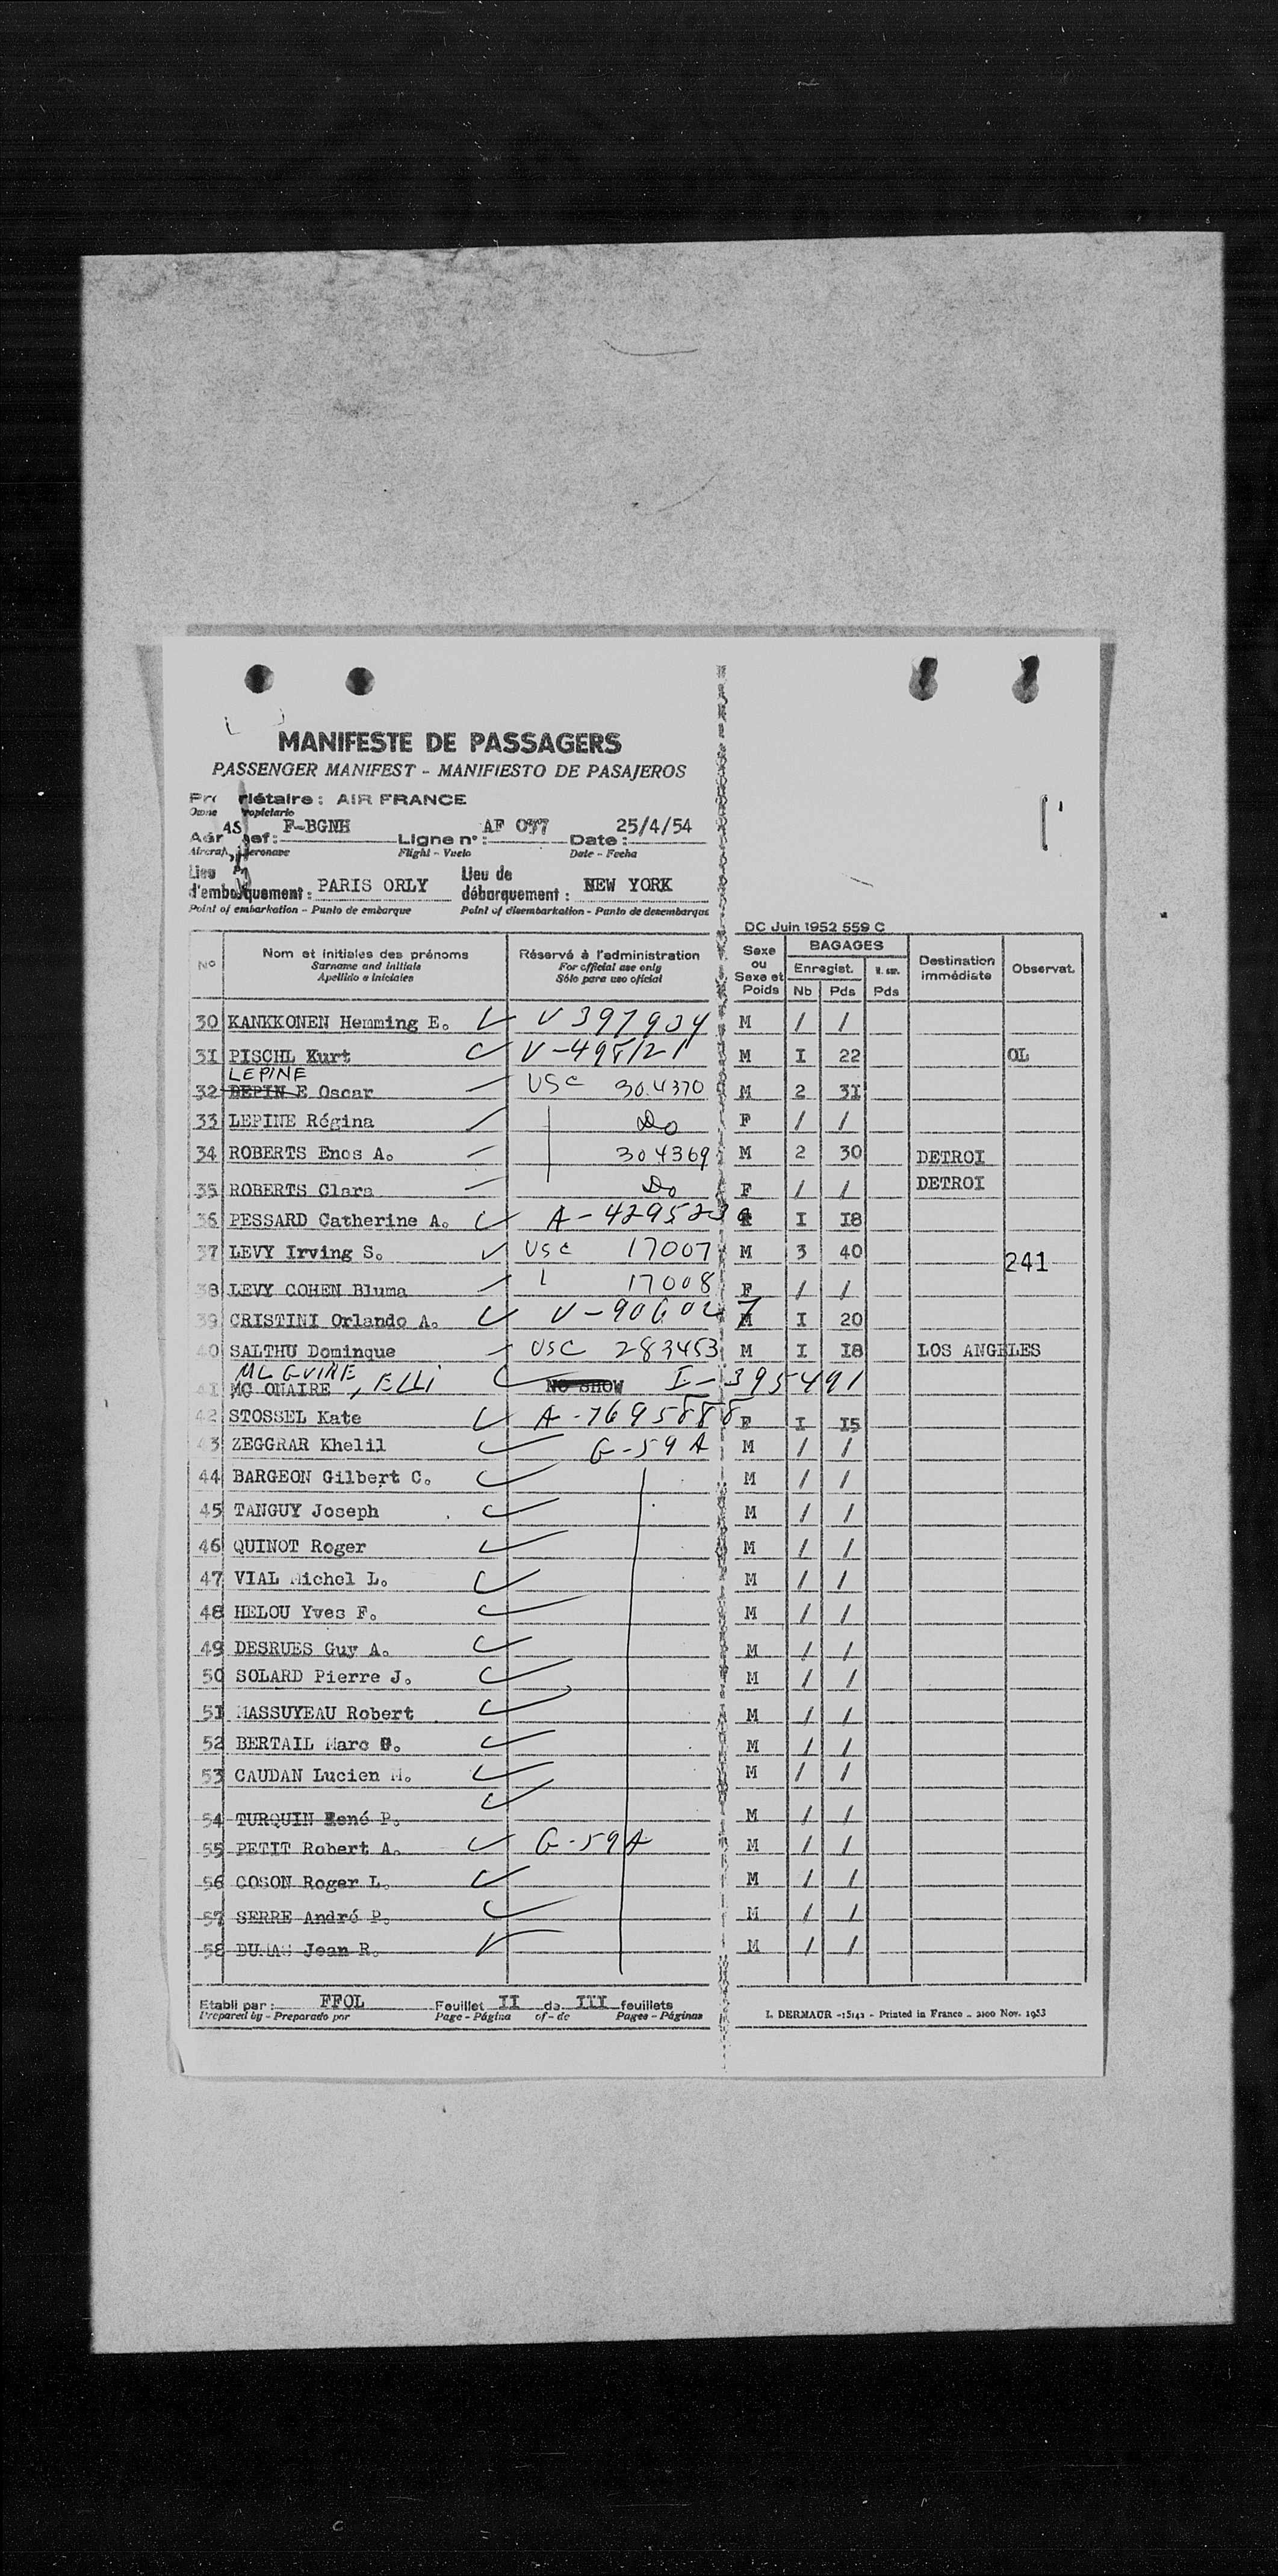 MANIFESTE DE PASSAGERS
PASSENGER MANIFEST - MANIFIESTO DE PASAJEROS
riétaire : AIR FRANCE
F-BGNH AF 077 25/4/54
Ligne n° : Date :
Flight - Vuelo Date - Fecha
Lieu de
d'embarquement : PARIS ORLY débarquement : NEW YORK
Point of embarkation - Punto de embarque Point of disembarkation - Punto de desembarque
DC Juin 1952 559 C
No Nom et initiales des prénoms Réservé à l'administration Sexe ou Sexe et Poids BAGAGES Destination immédiate Observat.
Surname and initials For official use only Enregist.
Apellido e iniciales Sólo para uso oficial Nb Pds Pds
30 KANKKONEN Hemming E. V 397934 M / /
31 PISCHL Kurt V-498121 M I 22 OL
LEPINE
32 DEPIN E Oscar USC 304370 M 2 31
33 LEPINE Régina Do F / /
34 ROBERTS Enos A. 304369 M 2 30 DETROI
35 ROBERTS Clara Do F / / DETROI
36 PESSARD Catherine A. A-4295236 I I8
37 LEVY Irving S. USC 17007 M 3 40 241
38 LEVY COHEN Bluma 17008 F / /
39 CRISTINI Orlando A. V-906027 M I 20
40 SALTHU Dominque USC 283453 M I I8 LOS ANGELES
MC GUIRE, ELLI
41 MC QUAIRE NO SHOW I-395491
42 STOSSEL Kate A-7695888 F I I5
43 ZEGGRAR Khelil G-59A M / /
44 BARGEON Gilbert C. M / /
45 TANGUY Joseph M / /
46 QUINOT Roger M / /
47 VIAL Michel L. M / /
48 HELOU Yves F. M / /
49 DESRUES Guy A. M / /
50 SOLARD Pierre J. M / /
5I MASSUYEAU Robert M / /
52 BERTAIL Marc M / /
53 CAUDAN Lucien M. M / /
54 TURQUIN René P. M / /
55 PETIT Robert A. G-59A M / /
56 COSON Roger L. M / /
57 SERRE André P. M / /
58 DUMAS Jean R. M / /
Etabli par : FFOL Feuillet II de III feuillets
Prepared by - Preparado por Page - Página of - de Pages - Páginas
L. DERMAUR -15142 - Printed in France - 2100 Nov. 1953